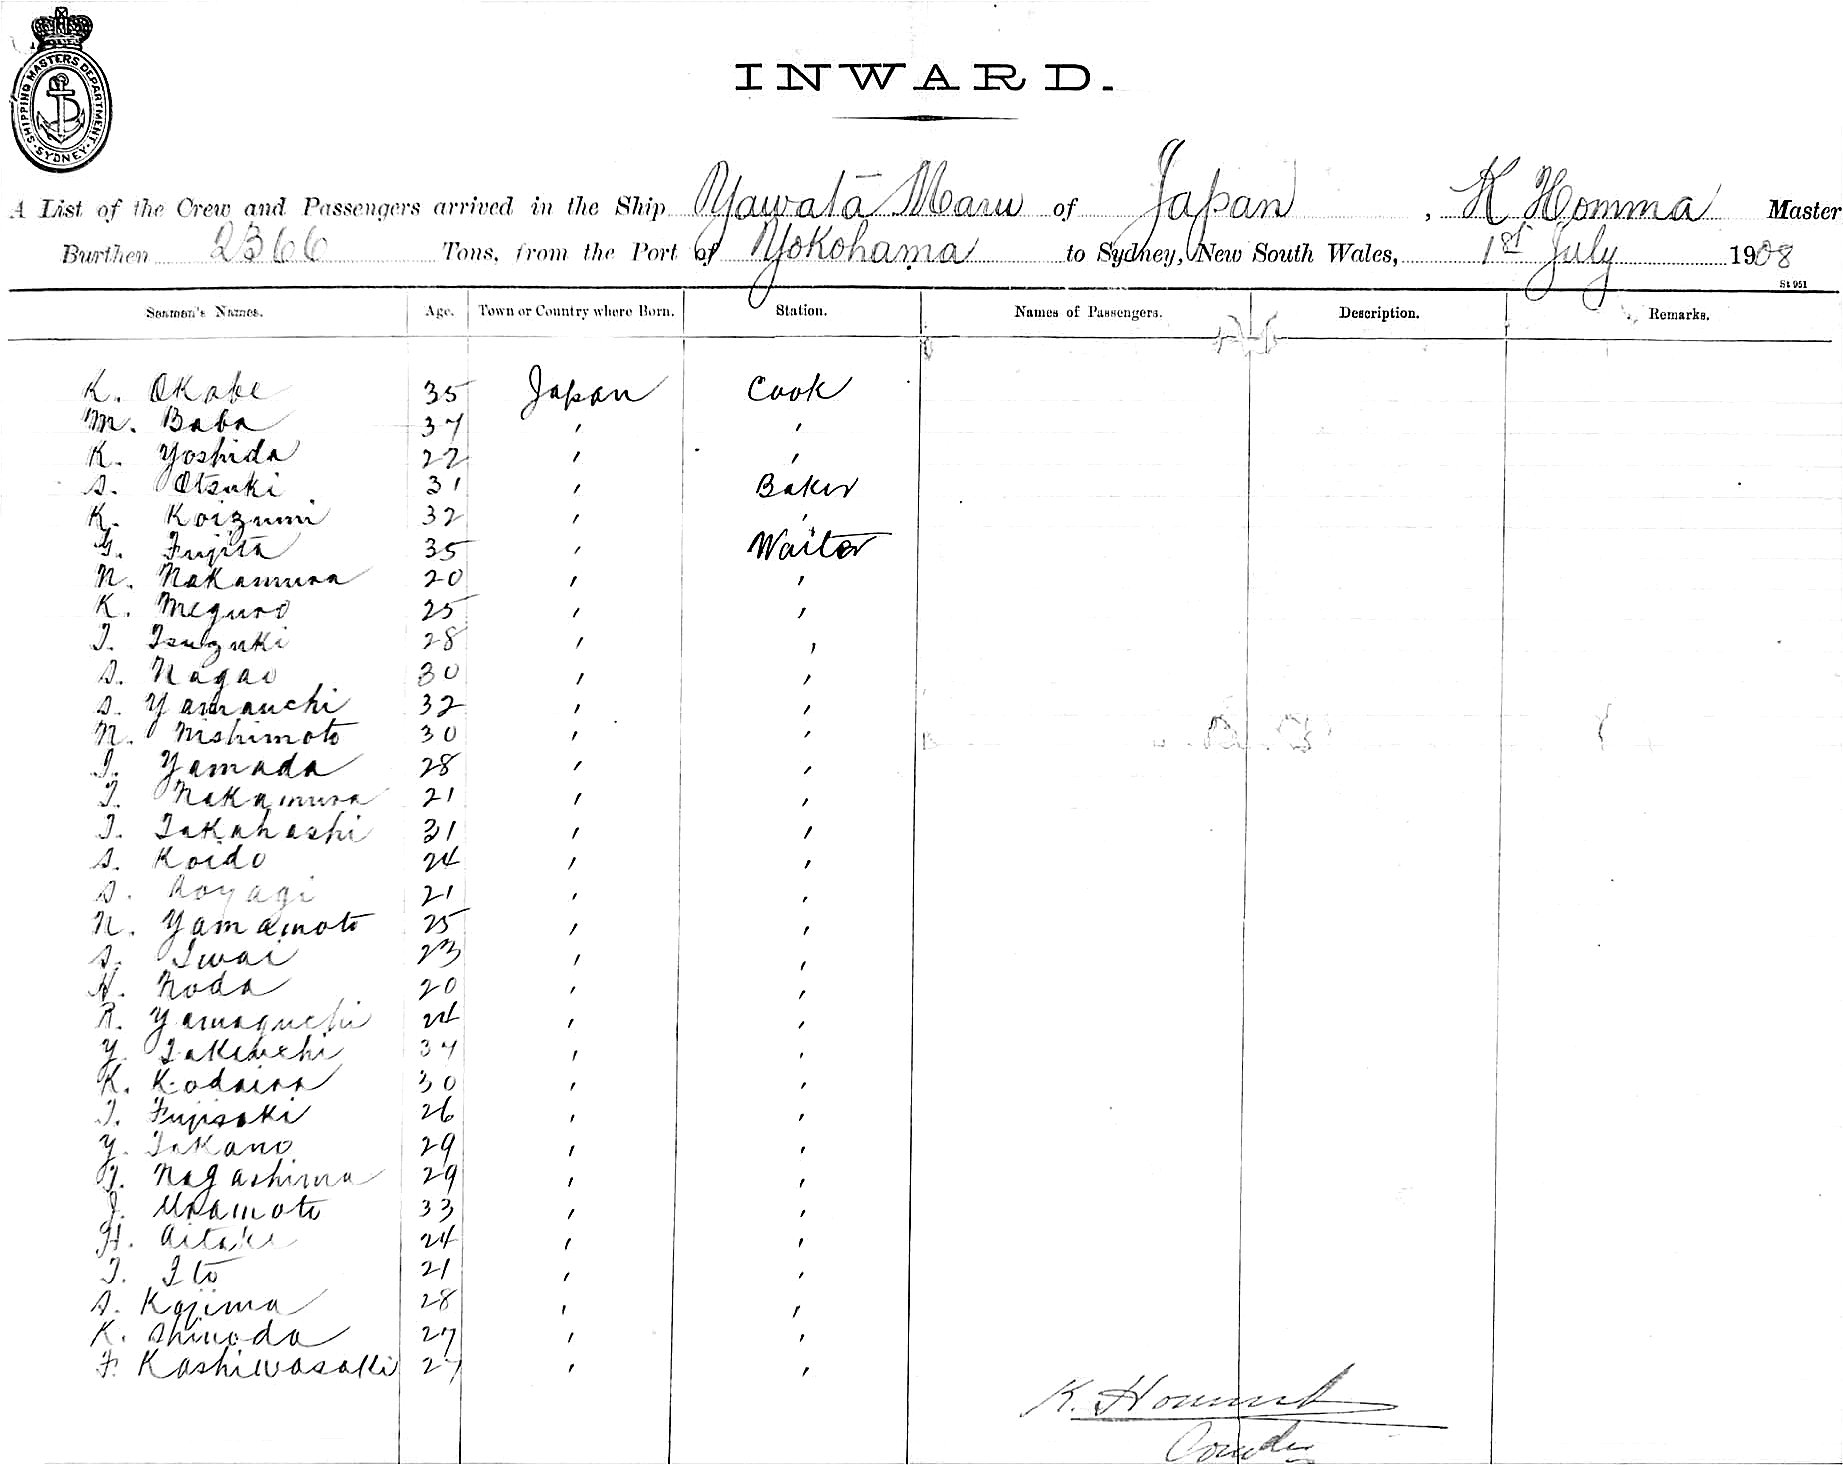 SHIPPING MASTERS DEPARTMENT
SYDNEY
INWARD.
A List of the Crew and Passengers arrived in the Ship Yawata Maru of Japan, K Homma Master
Burthen 2366 Tons, from the Port of Yokohama to Sydney, New South Wales, 1st July 1908
St 951
Seamen's Names. Age. Town or Country where Born. Station. Names of Passengers. Description. Remarks.
K. Okabe 35 Japan Cook
M. Baba 37 " "
K. Yoshida 22 " "
S. Otsuki 31 " Baker
K. Koizumi 32 " "
G. Fujita 35 " Waiter
N. Nakamura 20 " "
K. Meguro 25 " "
T. Tsuzuki 28 " "
S. Nagao 30 " "
S. Yamauchi 32 " "
N. Nishimoto 30 " "
T. Yamada 28 " "
T. Nakamura 21 " "
T. Takahashi 31 " "
S. Koido 24 " "
S. Aoyagi 21 " "
N. Yamamoto 25 " "
S. Iwai 23 " "
H. Noda 20 " "
R. Yamaguchi 24 " "
Y. Takeuchi 37 " "
K. Kodaira 30 " "
T. Fujisaki 26 " "
Y. Takano 29 " "
T. Nagashima 29 " "
J. Uramoto 33 " "
H. Aitake 24 " "
T. Ito 21 " "
S. Kojima 28 " "
K. Shinoda 27 " "
F. Kashiwasaki 27 " "
K. Homma